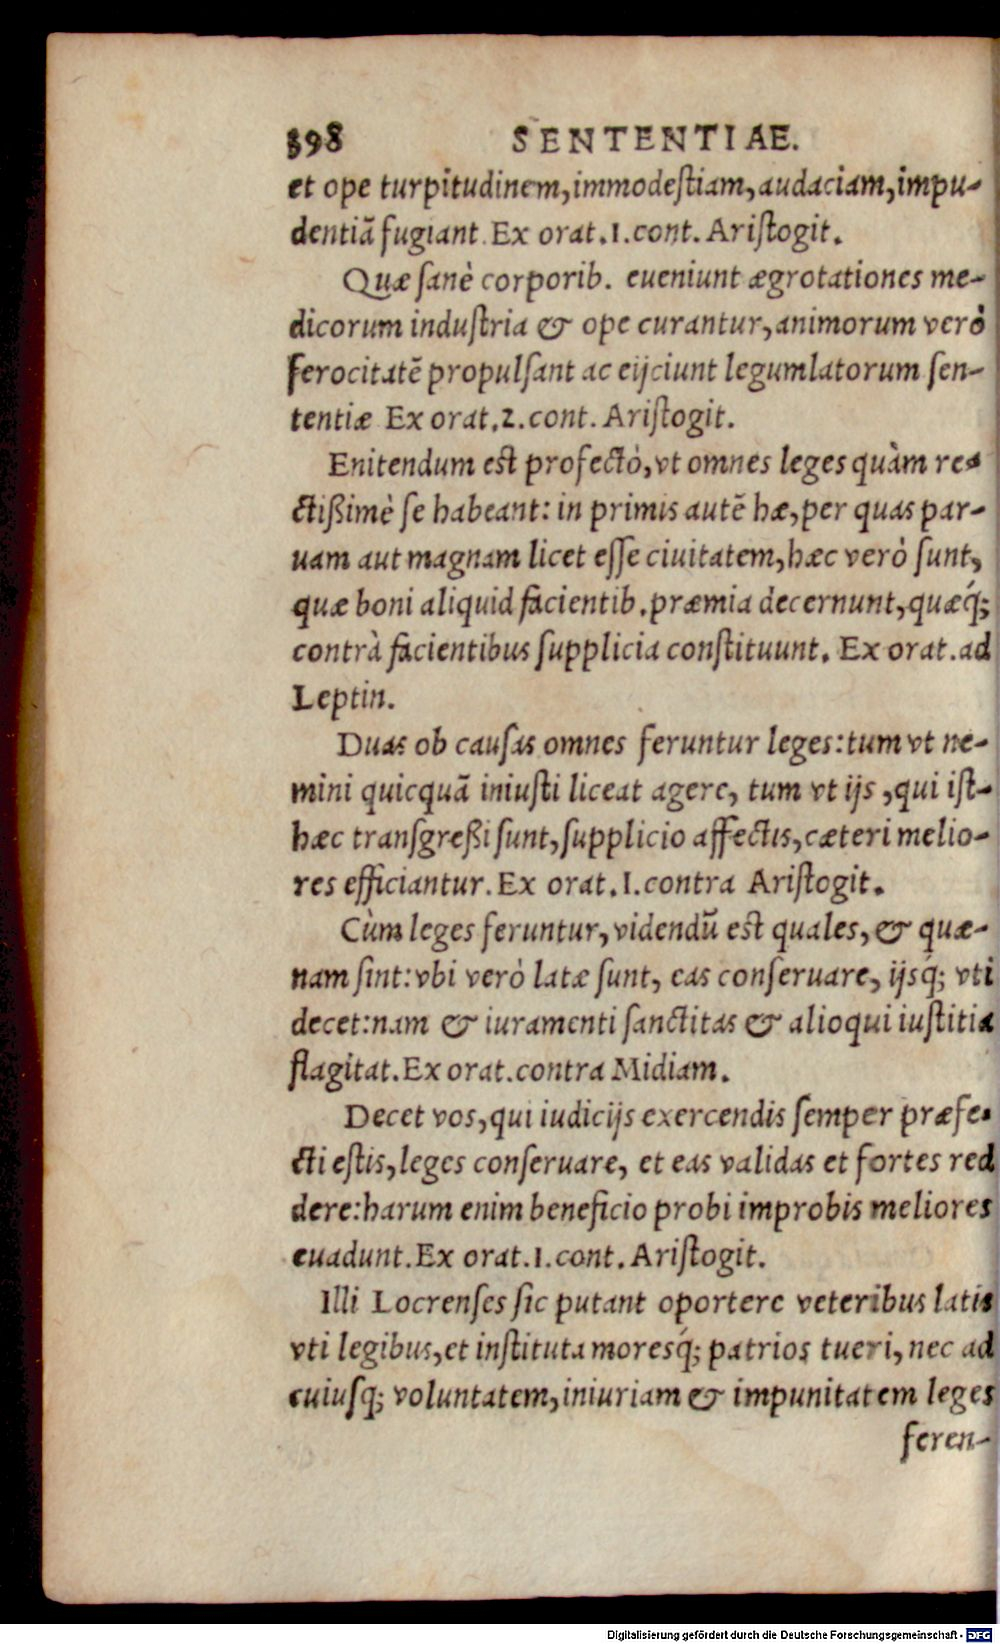 398 SENTENTIAE.
et ope turpitudinem, immodeſtiam, audaciam, impu-
dentiã fugiant. Ex orat. 1. cont. Ariſtogit.
Quæ ſanè corporib. eueniunt ægrotationes me-
dicorum induſtria & ope curantur, animorum verò
ferocitatẽ propulſant ac eijciunt legumlatorum ſen-
tentiæ Ex orat. 2. cont. Ariſtogit.
Enitendum eſt profectò, vt omnes leges quàm re-
ctißimè ſe habeant: in primis autẽ hæ, per quas par-
uam aut magnam licet eſſe ciuitatem, hæc verò ſunt,
quæ boni aliquid facientib. præmia decernunt, quæq́;
contrà facientibus ſupplicia conſtituunt. Ex orat. ad
Leptin.
Duas ob cauſas omnes feruntur leges: tum vt ne-
mini quicquã iniuſti liceat agere, tum vt ijs, qui iſt-
hæc tranſgreßi ſunt, ſupplicio affectis, cæteri melio-
res efficiantur. Ex orat. 1. contra Ariſtogit.
Cùm leges feruntur, videndũ eſt quales, & quæ-
nam ſint: vbi verò latæ ſunt, eas conſeruare, ijsq́; vti
decet: nam & iuramenti ſanctitas & alioqui iuſtitia
flagitat. Ex orat. contra Midiam.
Decet vos, qui iudicijs exercendis ſemper præfe-
cti eſtis, leges conſeruare, et eas validas et fortes red
dere: harum enim beneficio probi improbis meliores
euadunt. Ex orat. 1. cont. Ariſtogit.
Illi Locrenſes ſic putant oportere veteribus latis
vti legibus, et inſtituta moresq́; patrios tueri, nec ad
cuiuſq; voluntatem, iniuriam & impunitatem leges
feren-
Digitalisierung gefördert durch die Deutsche Forschungsgemeinschaft - DFG